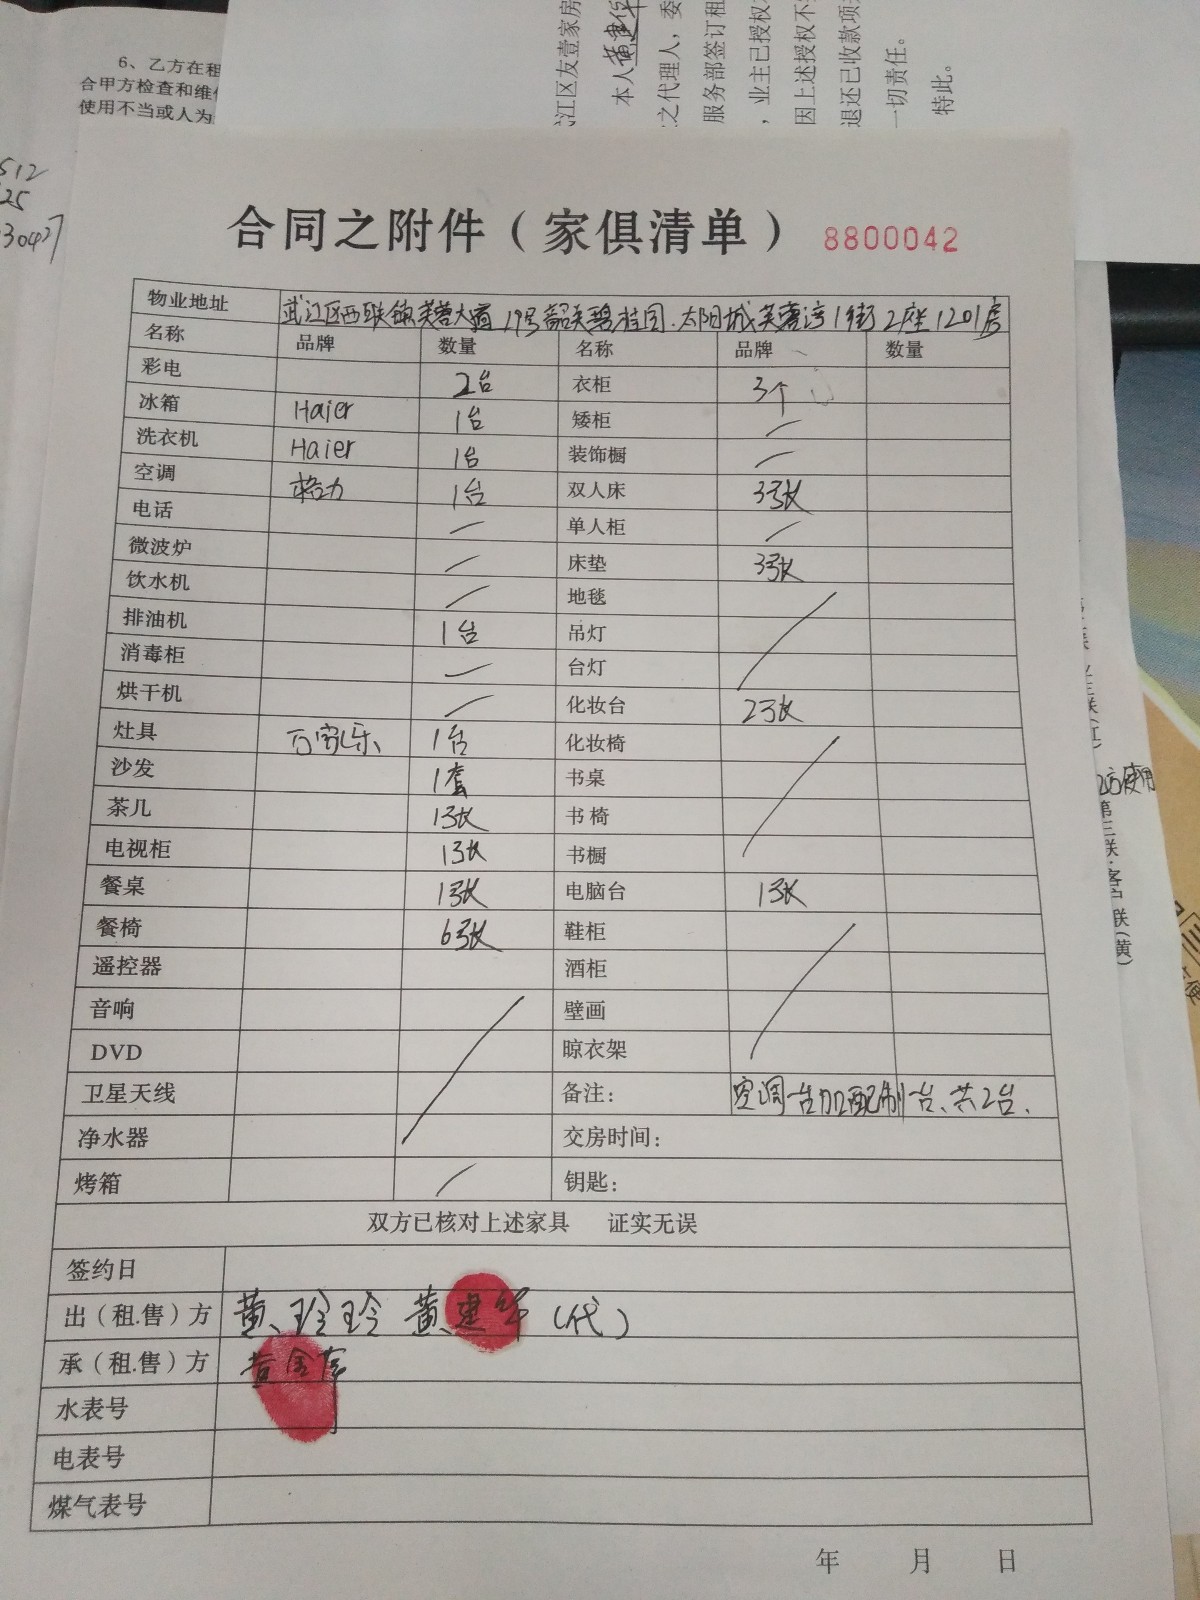 6、乙方在租
合甲方检查和维
使用不当或人为
512
25
30427
江区友壹家房
本人黄建华
之代理人，委
服务部签订租
，业主已授权
因上述授权不
退还已收款项
一切责任。
特此。
合同之附件（家俱清单） 8800042
物业地址 武江区西联镇芙蓉大道19号韶关碧桂园.太阳城芙蓉湾1街2座1201房
名称 品牌 数量 名称 品牌 数量
彩电 2台 衣柜 3个
冰箱 Haier 1台 矮柜 /
洗衣机 Haier 1台 装饰橱 /
空调 格力 1台 双人床 3张
电话 / 单人柜 /
微波炉 / 床垫 3张
饮水机 / 地毯 /
排油机 1台 吊灯
消毒柜 / 台灯
烘干机 / 化妆台 2张
灶具 万家乐 1台 化妆椅 /
沙发 1套 书桌
茶几 1张 书椅
电视柜 1张 书橱
餐桌 1张 电脑台 1张
餐椅 6张 鞋柜 /
遥控器 酒柜
音响 / 壁画
DVD 晾衣架
卫星天线 备注： 空调一台加配制一台、共2台、
净水器 交房时间：
烤箱 / 钥匙：
双方已核对上述家具 证实无误
签约日
出（租.售）方 黄玲玲 黄建华（代）
承（租.售）方
水表号
电表号
煤气表号
年 月 日
联（红）
乙方使用
第三联:客户联（黄）